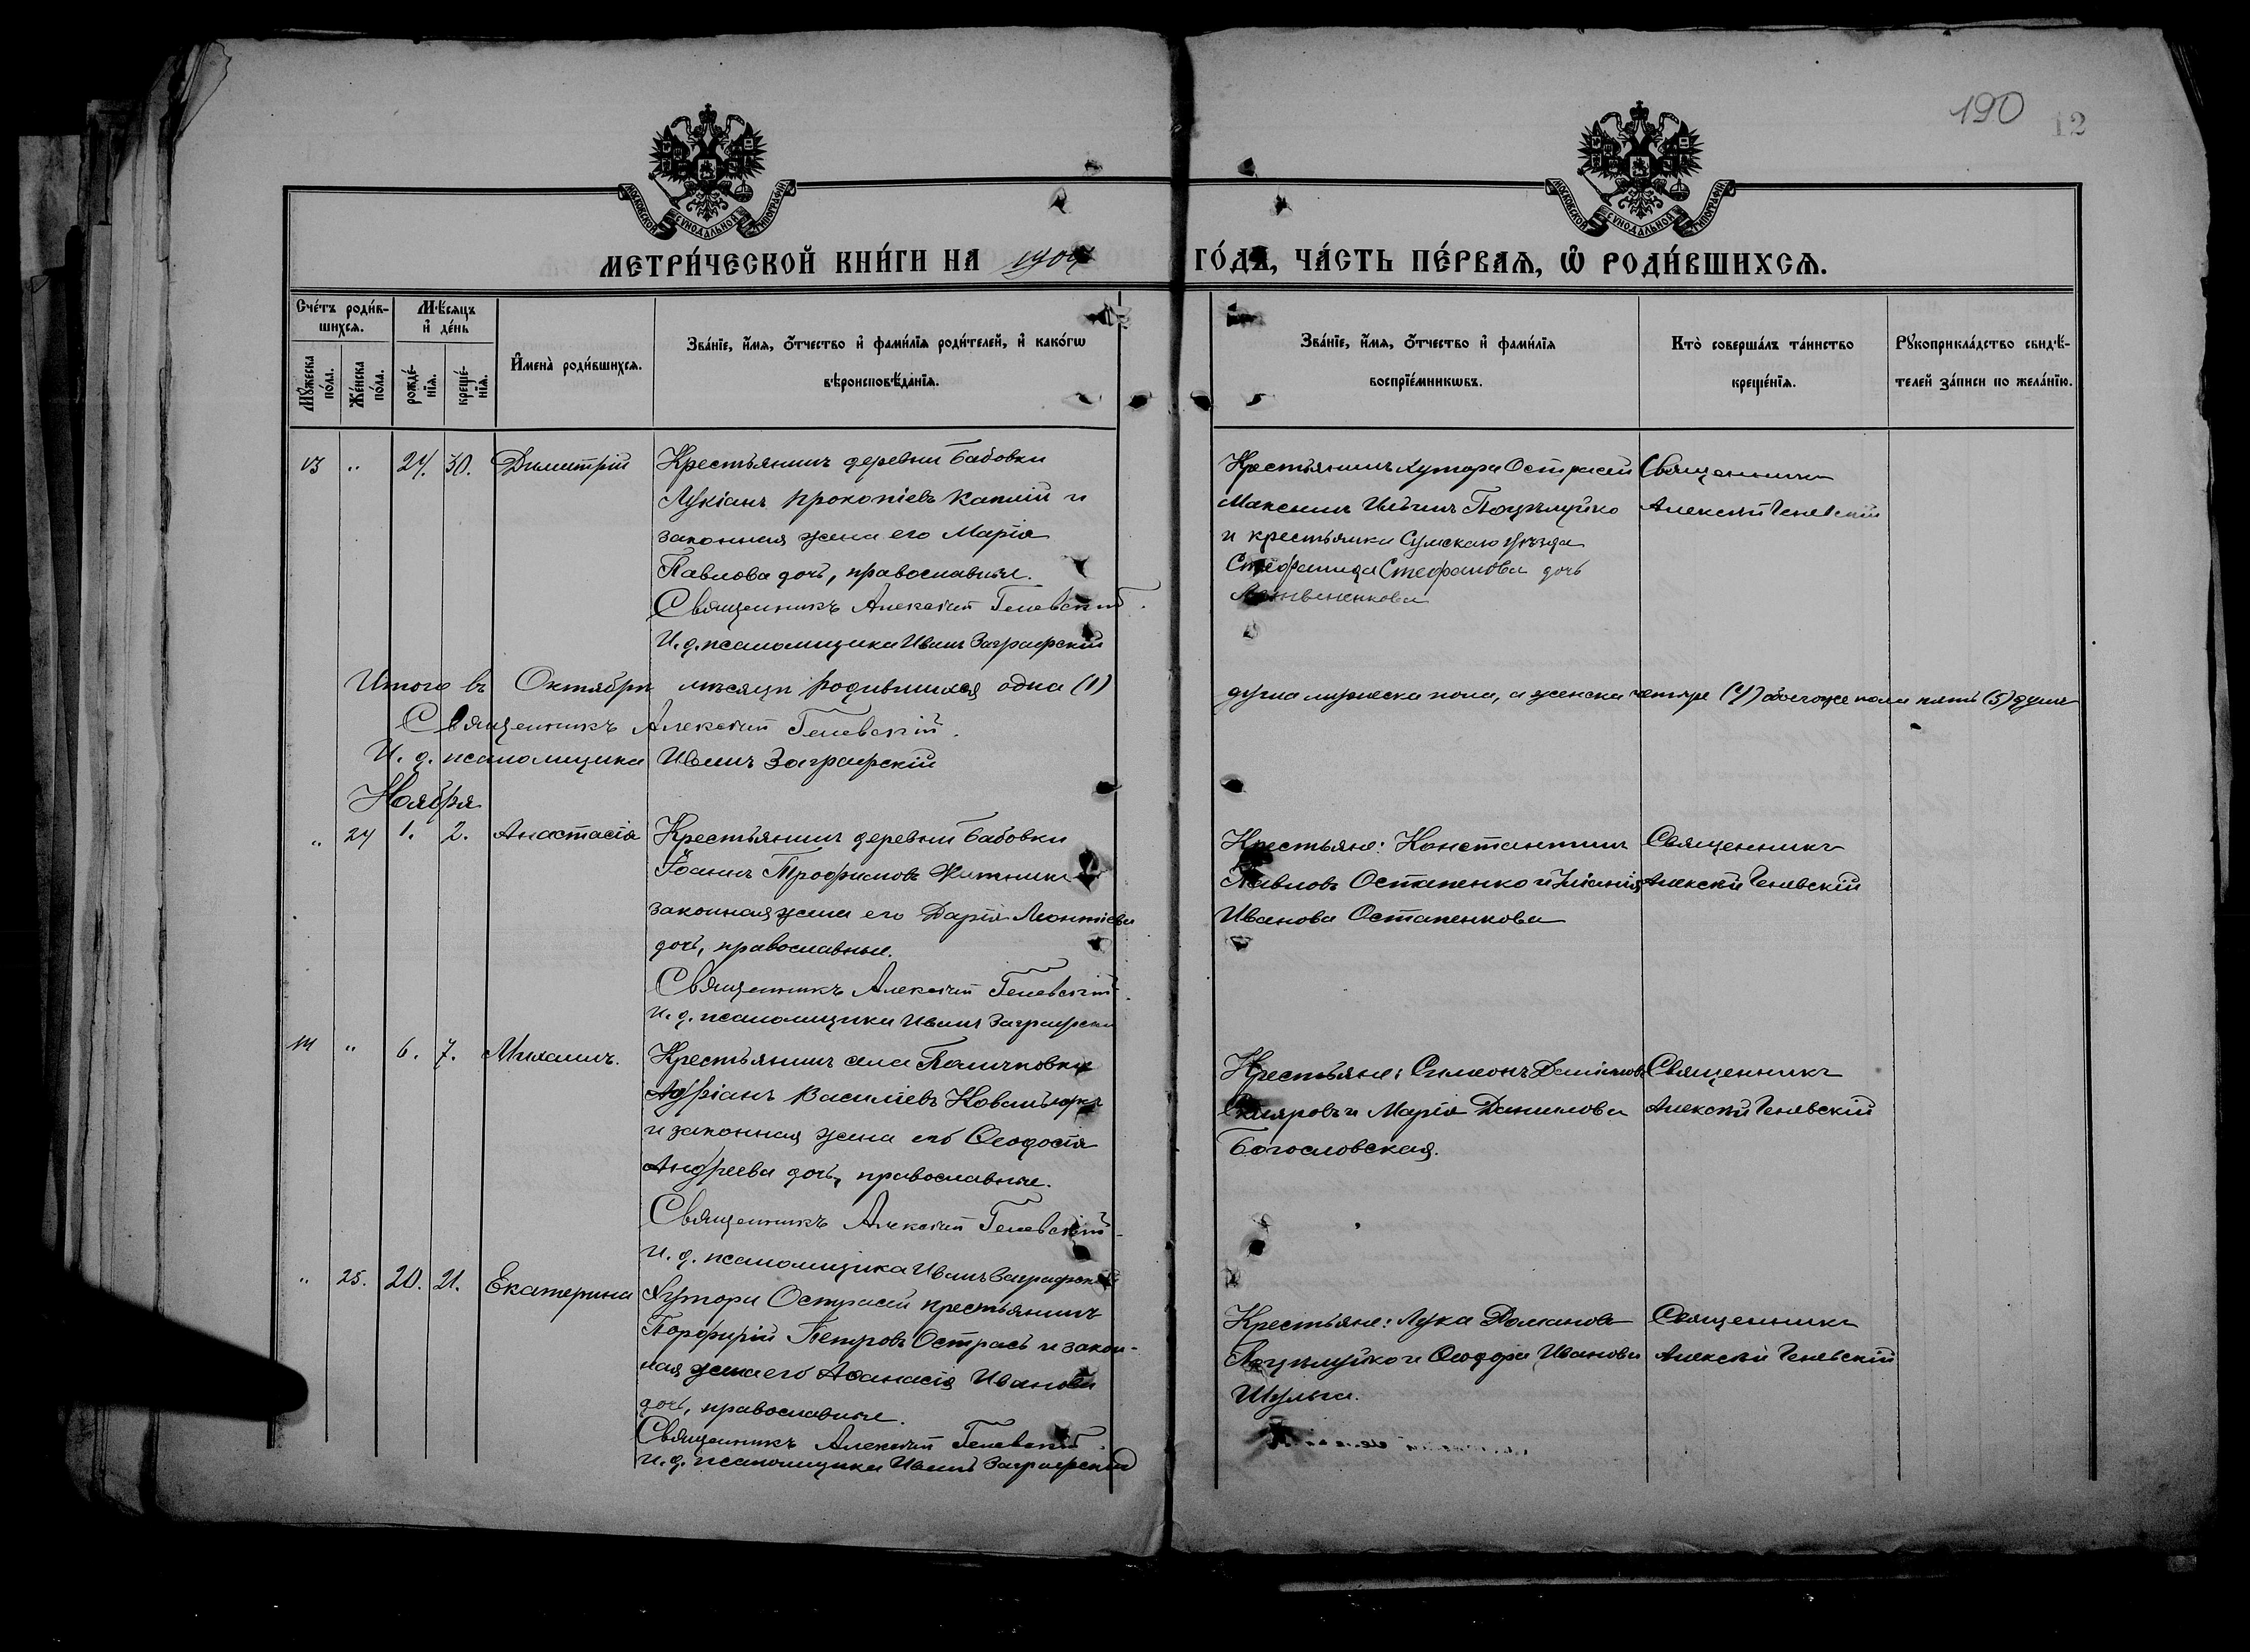 190 12
МОСКОВСКОЙ СУНОДАЛЬНОЙ ТИПОГРАФІИ
МОСКОВСКОЙ СУНОДАЛЬНОЙ ТИПОГРАФІИ
МЕТРИ́ЧЕСКОЙ КНИ́ГИ НА ГО́ДЪ, ЧА́СТЬ ПЕ́РВАѦ, Ѡ РОДИ́ВШИХСѦ.
Сче́тъ роди́в-
шихсѧ.
Мѣ́сяцъ
и҆ де́нь
Мꙋ́жеска
по́ла.
Же́нска
по́ла.
рожде́-
нїѧ.
креще́-
нїѧ.
И҆мена̀ роди́вшихсѧ.
Зва́нїе, и҆́мѧ, ѻ҆́тчество и҆ фами́лїѧ роди́телей, и҆ како́гѡ
вѣроисповѣ́данїѧ.
Зва́нїе, и҆́мѧ, ѻ҆́тчество и҆ фами́лїѧ
воспрїе́мникѡвъ.
Кто̀ соверша́лъ та́инство
креще́нїѧ.
Рꙋкоприкла́дство свидѣ́-
телей за́писи по жела́нїю.
13 " 27. 30. Димитрій
Крестьянинъ деревни Бабовки
Лукіанъ Прокопіевъ Каплій и
законная жена его Марія
Павлова дочь, православные.
Священникъ Алексѣй Геневскій.
И. д. псаломщика Иванъ Заграфскій
Крестьянинъ хутора Острасей
Максимъ Ильинъ Поцѣлуйко
и крестьянка Сумскаго уѣзда
Стефанида Стефанова дочь
Священникъ
Алексѣй Геневскій
Итого въ Октябрѣ мѣсяцѣ родившихся одна (1) душа мужеска пола, а женска четыре (4) обоегоже пола пять (5) душъ
Священникъ Алексѣй Геневскій.
И. д. псаломщика Иванъ Заграфскій
Ноября
" 24 1. 2. Анастасія
Крестьянинъ деревни Бабовки
Іоаннъ Трофимовъ Житникъ
законная жена его Дарія Леонтіева
дочь, православные.
Священникъ Алексѣй Геневскій.
И. д. псаломщика Иванъ Заграфскій
Крестьяне: Константинъ
Павловъ Остапенко и
Иванова Остапенкова
Священникъ
Алексѣй Геневскій
14 " 6. 7. Михаилъ.
Крестьянинъ села
Адріанъ Василіевъ
и законная жена его Ѳеодосія
Андреева дочь, православные.
Священникъ Алексѣй Геневскій
И. д. псаломщика Иванъ Заграфскій
Крестьяне: Симеонъ
Скляровъ и Марія Данилова
Богословская.
Священникъ
Алексѣй Геневскій
" 25. 20. 21. Екатерина
Хутора Острасей крестьянинъ
Порфирій ПетровъОстрась и закон-
ная жена его Аѳанасія Иванова
дочь, православные.
Священникъ Алексѣй Геневскій.
И. д. псаломщика Иванъ Заграфскій
Крестьяне: Лука Романовъ
Поцѣлуйко и Ѳеодора Иванова
Шульга.
Священникъ
Алексѣй Геневскій